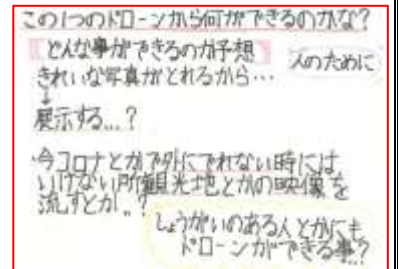 この1つのドローンから何ができるのかな?
どんな事ができるのか予想
人のために
きれいな写真がとれるから…
↓
展示する…?
今コロナとかで外にでれない時には
いけない所観光地とかの映像を
流すとか…?
しょうがいのある人とかにも
ドローンができる事?